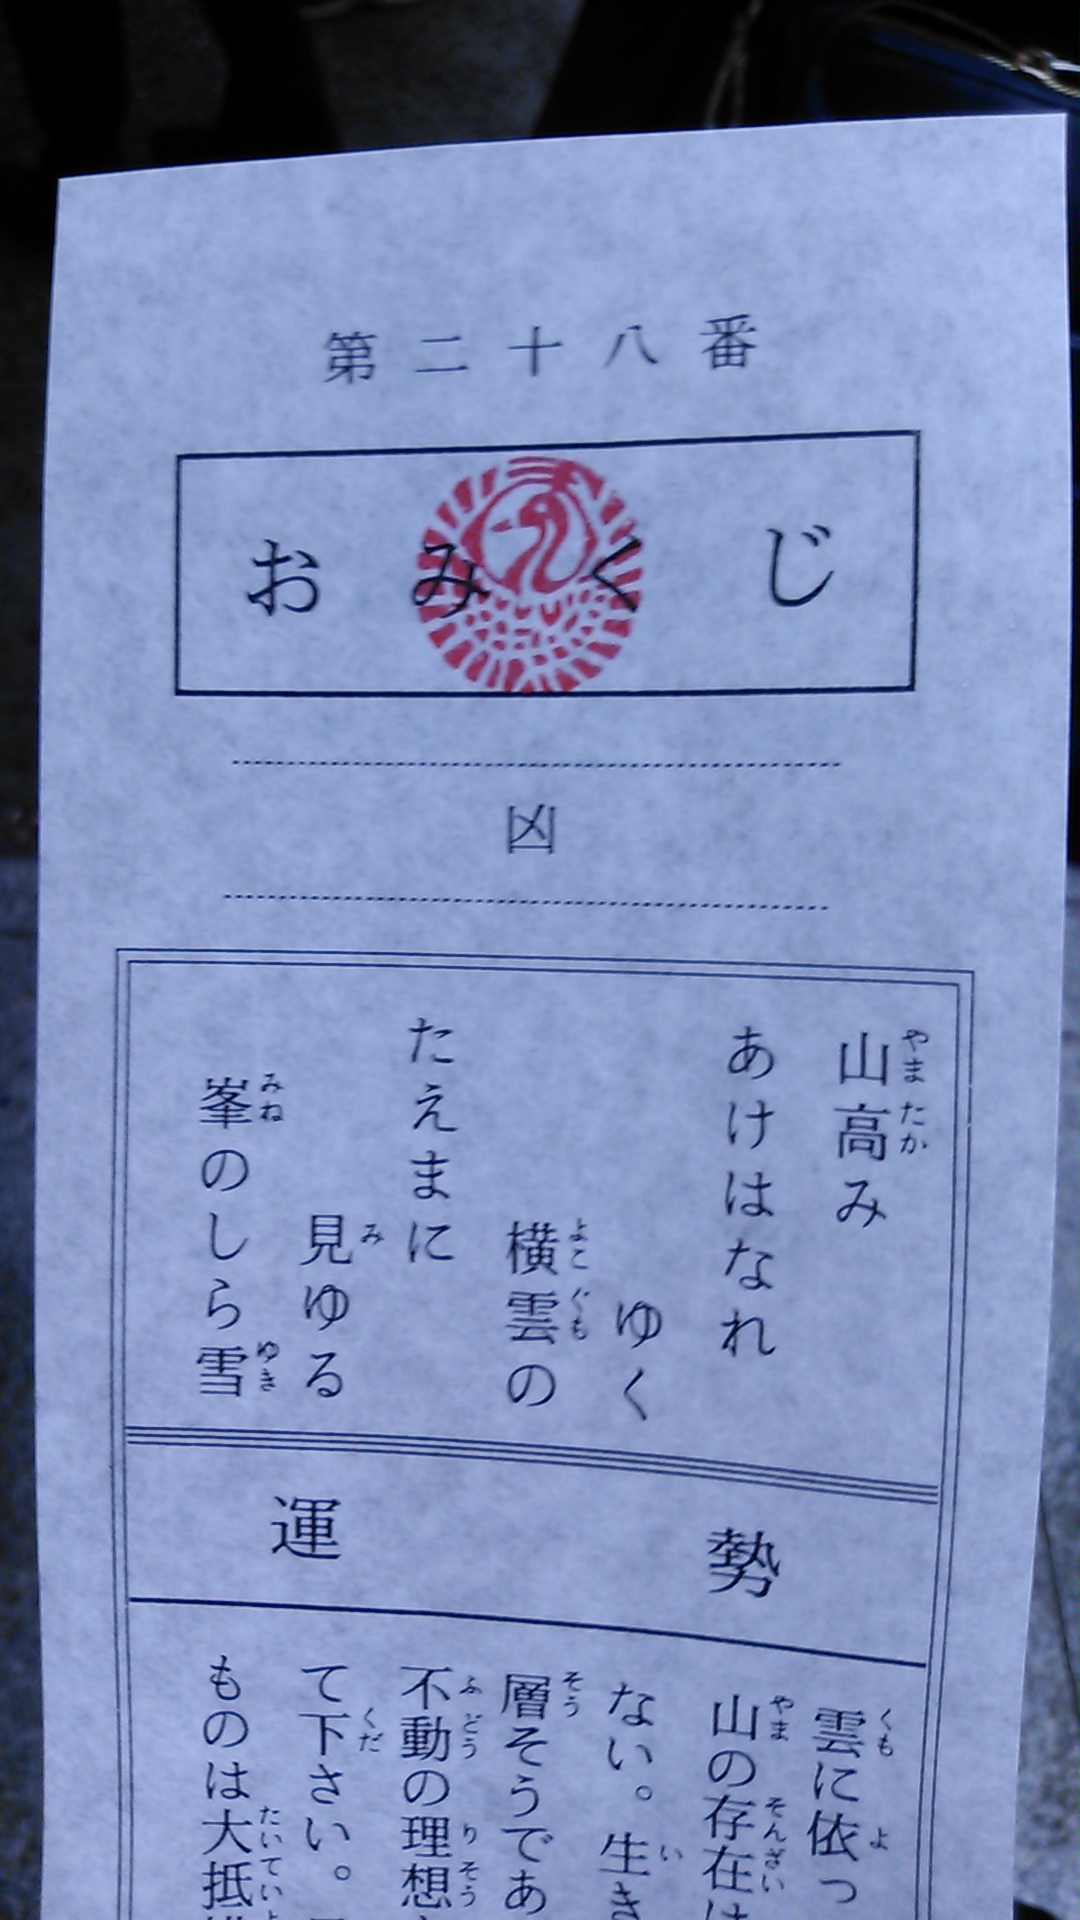 第二十八番
おみくじ
凶
山高み
あけはなれ
ゆく
横雲の
たえまに
見ゆる
峯のしら雪
運勢
雲に依っ
山の存在は
ない。生き
層そうであ
不動の理想
て下さい。
ものは大抵